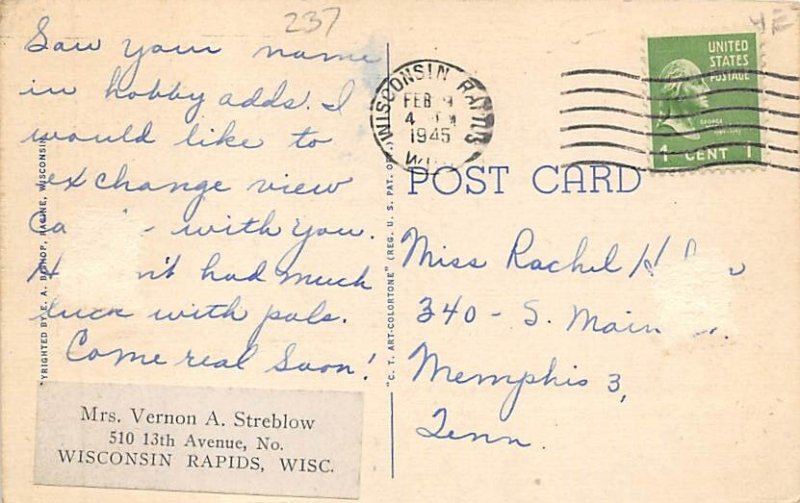 237
Saw your name
in hobby adds! I
would like to
exchange view
with You.
had much
luck with pals.
Come real Soon!
Mrs. Vernon A. Streblow
510 13th Avenue, No.
WISCONSIN RAPIDS, WISC.
YRIGHTED BY E. A. BISHOP, RACINE, WISCONSIN
"C. T. ART-COLORTONE" (REG. U. S. PAT. OFF.)
WISCONSIN RAPIDS
FEB
4
1945
WIS.
UNITED
STATES
POSTAGE
GEORGE
1 CENT 1
POST CARD
Miss Rachel
340 - S. Main
Memphis 3,
Tenn.